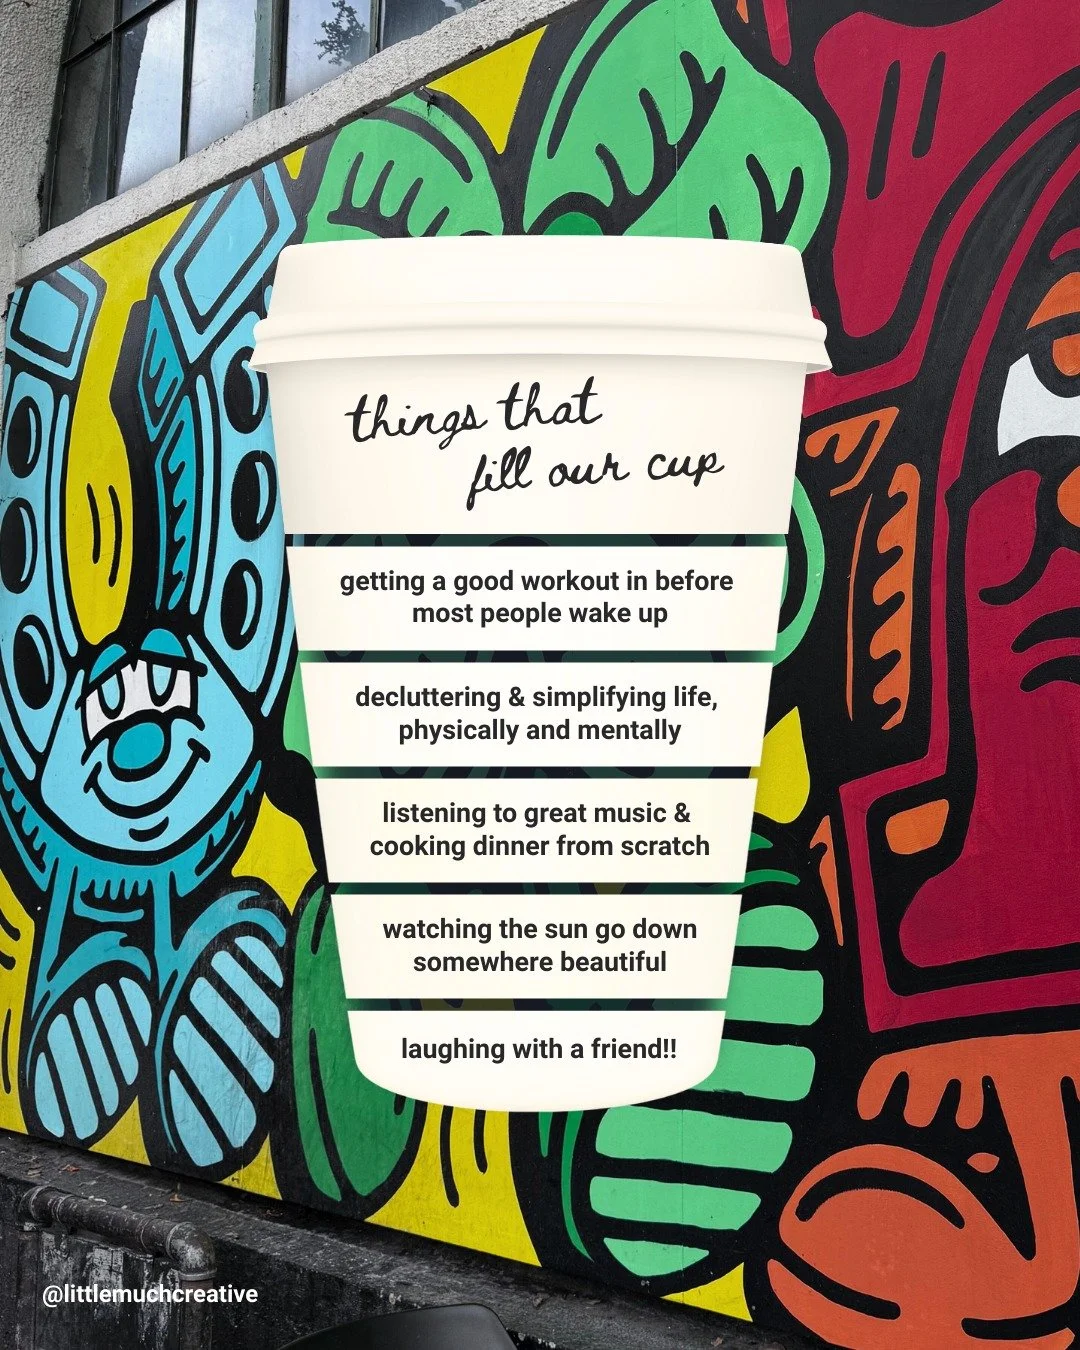 things that
fill our cup
getting a good workout in before
most people wake up
decluttering & simplifying life,
physically and mentally
listening to great music &
cooking dinner from scratch
watching the sun go down
somewhere beautiful
laughing with a friend!!
@littlemuchcreative